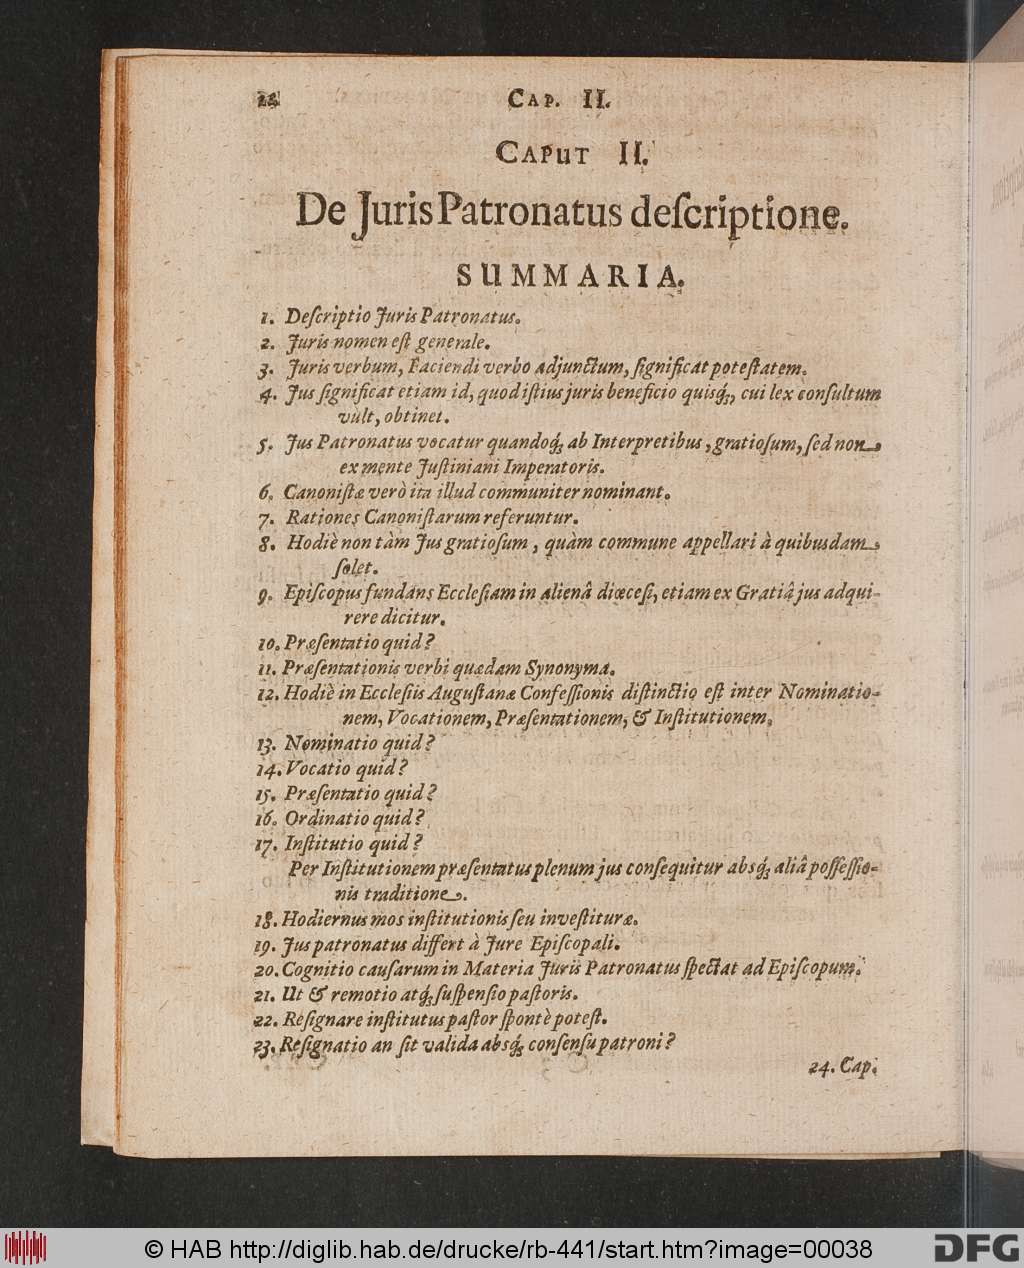 22 CAP. II.
CAPUT II.
De Juris Patronatus deſcriptione.
SUMMARIA.
1. Deſcriptio Juris Patronatus.
2. Juris nomen eſt generale.
3. Juris verbum, Faciendi verbo adjunctum, ſignificat poteſtatem.
4. Jus ſignificat etiam id, quod iſtius juris beneficio quisq́;, cui lex conſultum
vult, obtinet.
5. Jus Patronatus vocatur quandoq́; ab Interpretibus, gratioſum, ſed non
ex mente Juſtiniani Imperatoris.
6. Canoniſtæ verò ita illud communiter nominant.
7. Rationes Canoniſtarum referuntur.
8. Hodiè non tàm Jus gratioſum, quàm commune appellari à quibusdam
ſolet.
9. Epiſcopus fundans Eccleſiam in alienâ diœceſi, etiam ex Gratiâ jus adqui-
rere dicitur.
10. Præſentatio quid?
11. Præſentationis verbi quædam Synonyma.
12. Hodiè in Eccleſiis Auguſtanæ Confeſſionis diſtinctio eſt inter Nominatio-
nem, Vocationem, Præſentationem, & Inſtitutionem.
13. Nominatio quid?
14. Vocatio quid?
15. Præſentatio quid?
16. Ordinatio quid?
17. Inſtitutio quid?
Per Inſtitutionem præſentatus plenum jus conſequitur absq́; aliâ poſſeſſio-
nis traditione.
18. Hodiernus mos inſtitutionis ſeu inveſtituræ.
19. Jus patronatus differt à Jure Epiſcopali.
20. Cognitio cauſarum in Materia Juris Patronatus ſpectat ad Epiſcopum.
21. Ut & remotio atq́; ſuſpenſio paſtoris.
22. Reſignare inſtitutus paſtor ſpontè poteſt.
23. Reſignatio an ſit valida absq́; conſenſu patroni?
24. Cap.
© HAB http://diglib.hab.de/drucke/rb-441/start.htm?image=00038
DFG